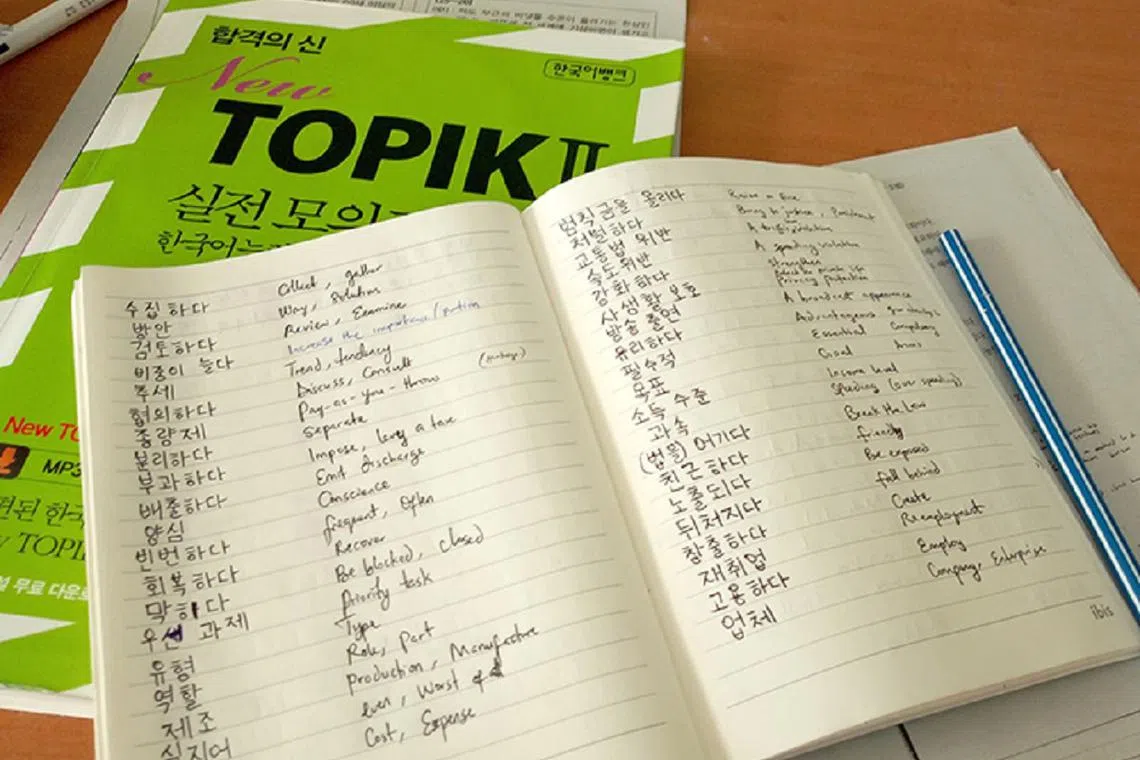 합격의 신
한국어뱅크
New
TOPIK II
실전 모의
한국어능
New TO
MP3
TOPI
무료 다운로
수집하다 Collect, gather
방안 Way, Solution
검토하다 Review, Examine
비중이 늘다 Increase the importance/portion
추세 Trend, tendency
협의하다 Discuss, Consult
종량제 Pay-as-you-throw (Garbage)
분리하다 Separate
부과하다 Impose, levy a tax
배출하다 Emit discharge
양심 Conscience
빈번하다 frequent, Often
회복하다 Recover
막히다 Be blocked, closed
우선 과제 Priority task
유형 Type
역할 Role, Part
제조 production, Manufacture
심지어 even, Worst of
Cost, Expense
범칙금을 올리다 Raise a fine
처벌하다 Bring to justice, Punishment
교통법 위반 A traffic violation
속도위반 A speeding violation
강화하다 Strengthen
사생활 보호 privacy protection
방송 출연 A broadcast appearance
유리하다 Advantageous
필수적 Essential Compulsory
목표 Goal Aims
소득 수준 Income level
과속 Speeding (over speeding)
(법을) 어기다 Break the law
친근하다 friendly
노출되다 Be exposed
뒤처지다 fall behind
창출하다 Create
재취업 Reemployment
고용하다 Employ
업체 Company Enterprise
ibis